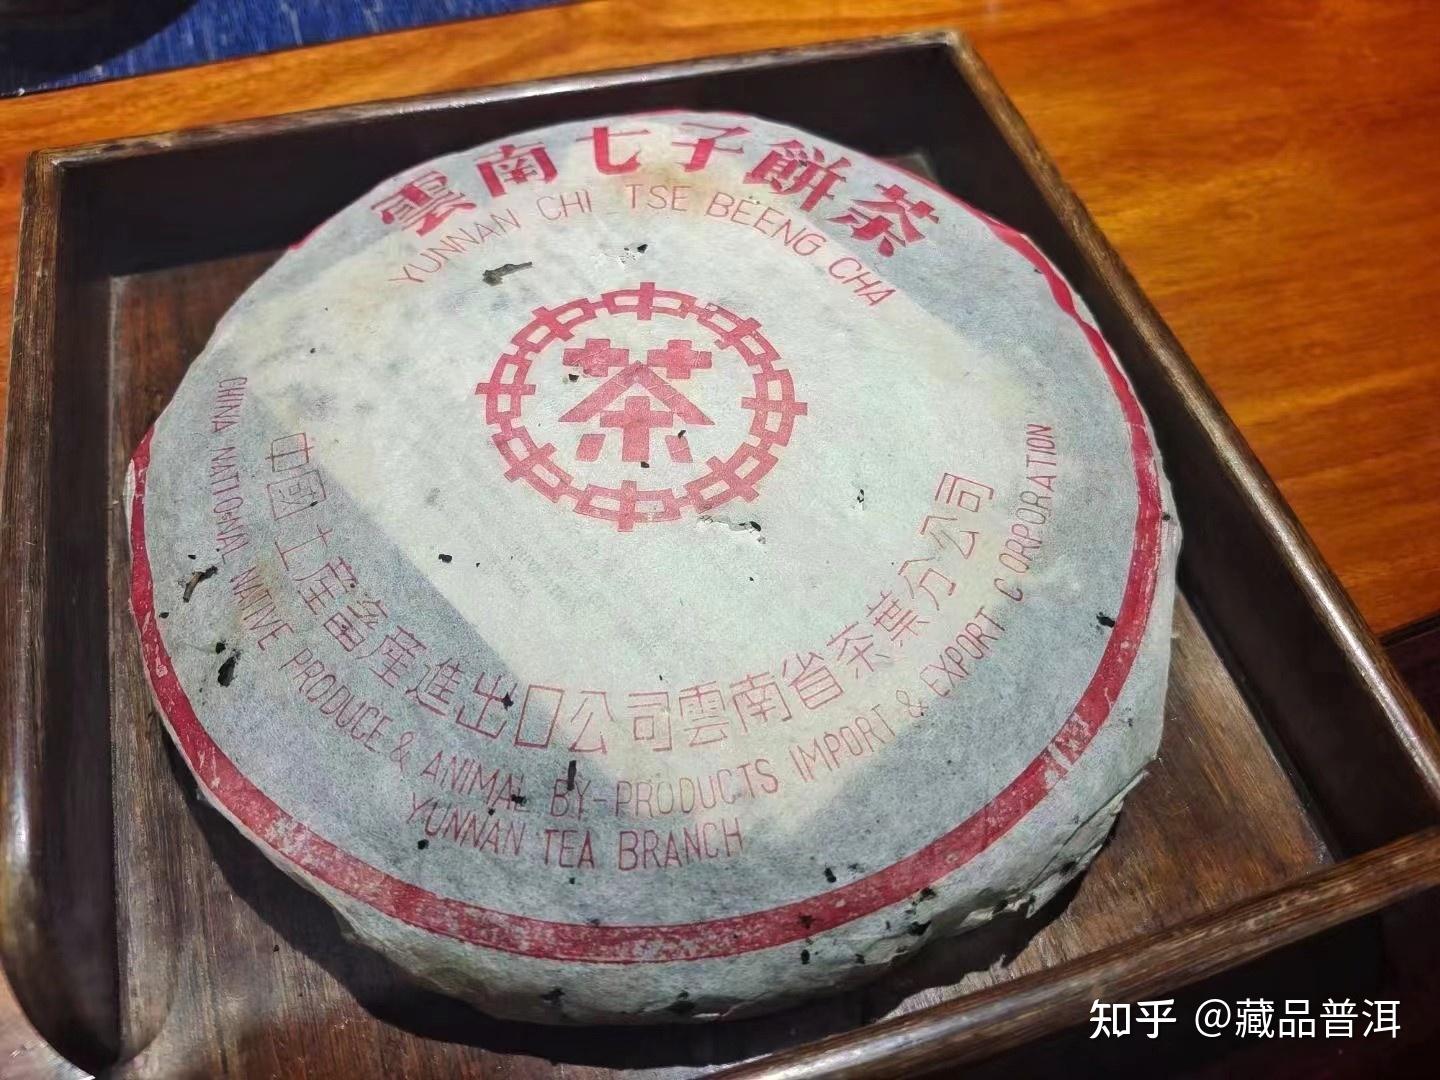 雲南七子餅茶
YUNNAN CHI TSE BEENG CHA
中中中中中中中中
茶
中國土産畜産進出口公司雲南省茶葉分公司
CHINA NATIONAL NATIVE PRODUCE & ANIMAL BY-PRODUCTS IMPORT & EXPORT CORPORATION
YUNNAN TEA BRANCH
知乎 @藏品普洱